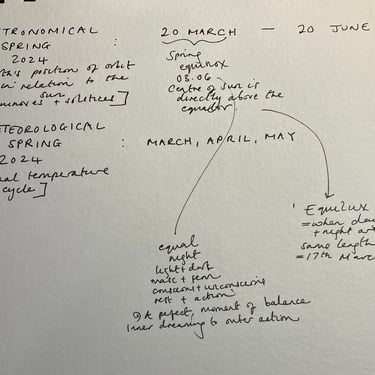 TRONOMICAL
SPRING : 20 MARCH — 20 JUNE
2024
th's position of orbit
in relation to the
sun
uinoxes + solstices]
Spring
equinox
03.06 -
Centre of sun is
directly above the
equator
TEOROLOGICAL
SPRING : MARCH, APRIL, MAY
2024
ual temperature
cycle]
' Equilux
= when day
+ night ar
same length
= 17th Marc
equal
night
light + dark
masc + fem
conscious + unconscious
rest + action
A perfect moment of balance
inner dreaming to outer action